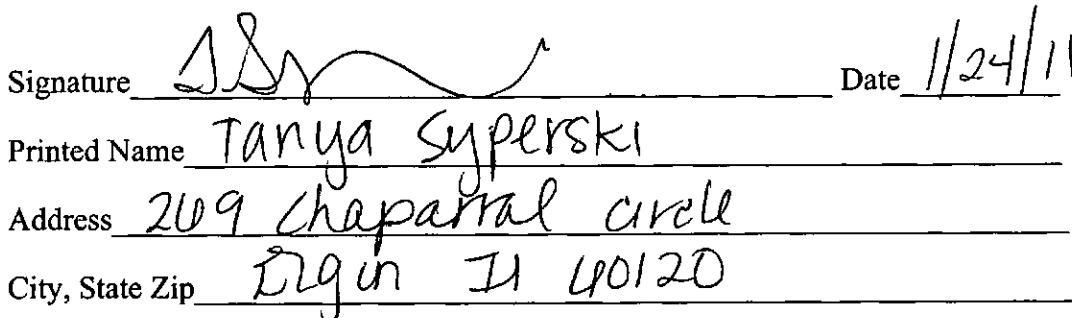 Signature Date 1/24/11
Printed Name Tanya Syperski
Address 269 Chaparral circle
City, State Zip Elgin Il 60120